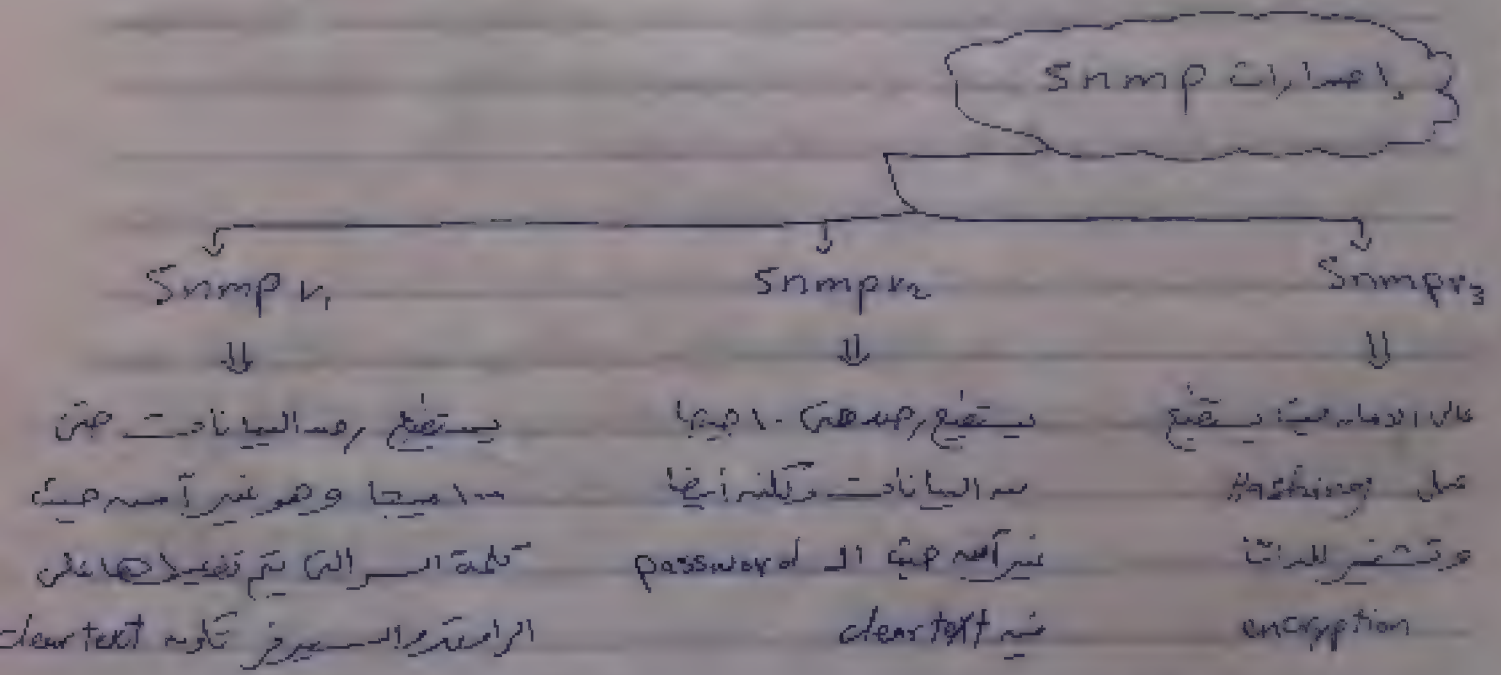 إصدارات snmp
Snmp v1
Snmp v2
Snmp v3
يستطيع رصد البيانات حتى
١٠٠ ميجا وهو غير آمن حيث
كلمة السر التي يتم تفعيلها على
الراوتر والسيرفر تكون clear text
يستطيع رصد حتى ١٠ جيجا
من البيانات ولكنه أيضا
غير آمن حيث الـ password
فيه clear text
عالى الامان حيث يستطيع
عمل Hashing
وتشفير للداتا
encryption